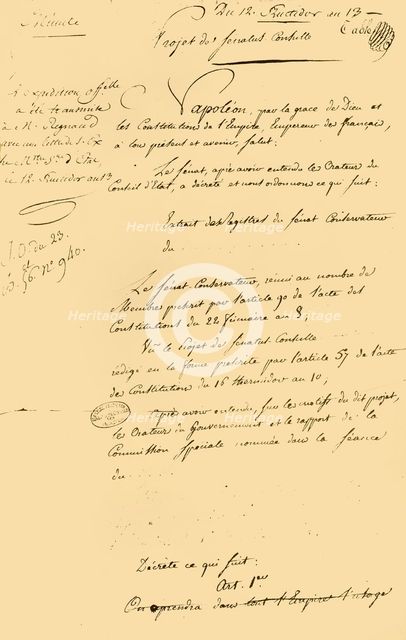 Minute
Du 12. Fructidor an 13
Projet de Senatus Consulte
L'expédition officielle
a été transmise
à M. Regnaud
le 12. Fructidor an 13
B. O. du 23.
et
No. 940.
Napoléon, par la grace de Dieu et
les Constitutions de l'Empire, Empereur des français,
à tous présent et avenir, Salut:
Le Sénat, après avoir entendu les Orateurs du
Conseil d'Etat, a décrété et nous ordonnons ce qui suit:
Extrait des Registres du Sénat Conservateur
du
Le Sénat Conservateur, réuni au nombre de
Membres prescrit par l'article 90 de l'acte des
Constitutions du 22 frimaire an 8,
Vu le projet de Senatus Consulte
rédigé en la forme prescrite par l'article 57 de l'acte
de Constitution du 16 thermidor an 10;
Après avoir entendu, sur les motifs du dit projet,
les Orateurs du Gouvernement et le rapport de la
Commission Spéciale nommée dans la séance
du
Décrète ce qui suit:
Art. 1er
On reprendra dans tout l'Empire l'usage
Heritage
Heritage
Heritage
Heritage